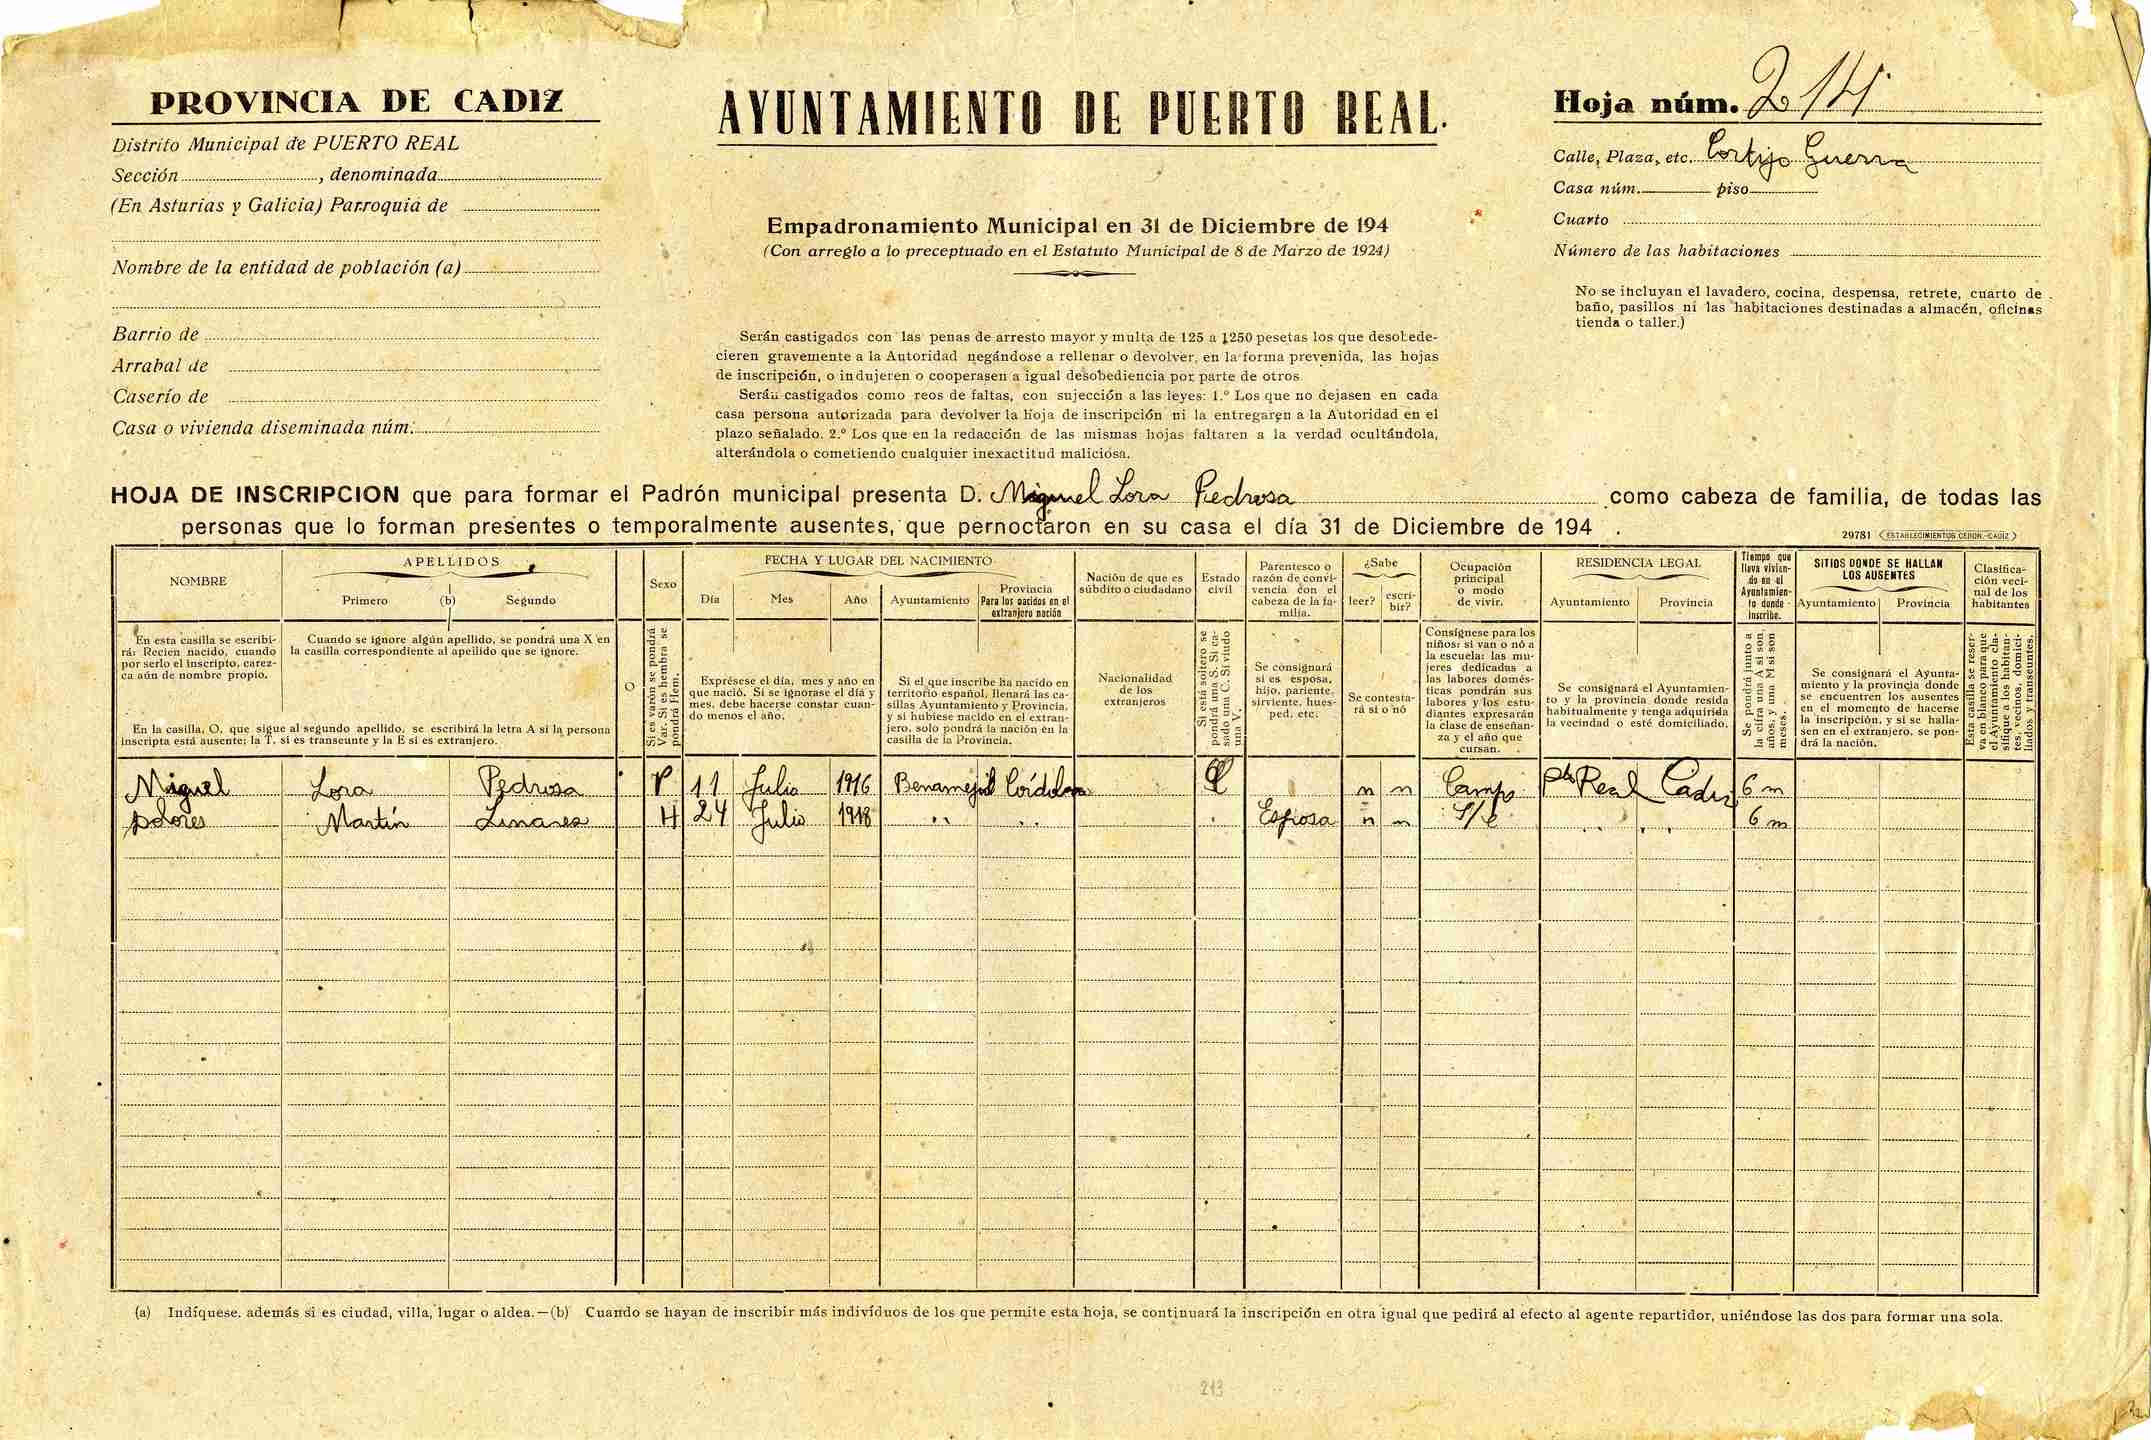 PROVINCIA DE CADIZ
Distrito Municipal de PUERTO REAL
Sección , denominada
(En Asturias y Galicia) Parroquia de
Nombre de la entidad de población (a)
Barrio de
Arrabal de
Caserío de
Casa o vivienda diseminada núm.
AYUNTAMIENTO DE PUERTO REAL.
Empadronamiento Municipal en 31 de Diciembre de 194
(Con arreglo a lo preceptuado en el Estatuto Municipal de 8 de Marzo de 1924)
Serán castigados con las penas de arresto mayor y multa de 125 a 1250 pesetas los que desobede-
cieren gravemente a la Autoridad negándose a rellenar o devolver, en la forma prevenida, las hojas
de inscripción, o indujeren o cooperasen a igual desobediencia por parte de otros
Serán castigados como reos de faltas, con sujección a las leyes: 1.º Los que no dejasen en cada
casa persona autorizada para devolver la hoja de inscripción ni la entregaren a la Autoridad en el
plazo señalado. 2.º Los que en la redacción de las mismas hojas faltaren a la verdad ocultándola,
alterándola o cometiendo cualquier inexactitud maliciosa.
Hoja núm. 214
Calle, Plaza, etc. Cortijo Guerra
Casa núm. piso
Cuarto
Número de las habitaciones
No se incluyan el lavadero, cocina, despensa, retrete, cuarto de
baño, pasillos ni las habitaciones destinadas a almacén, oficinas
tienda o taller.)
HOJA DE INSCRIPCION que para formar el Padrón municipal presenta D. Miguel Lora Pedrosa como cabeza de familia, de todas las
personas que lo forman presentes o temporalmente ausentes, que pernoctaron en su casa el día 31 de Diciembre de 194 .
29781 (ESTABLECIMIENTOS CERON.-CADIZ)
NOMBRE
APELLIDOS
Primero (b) Segundo
O
Sexo
FECHA Y LUGAR DEL NACIMIENTO
Día Mes Año Ayuntamiento
Provincia
Para los nacidos en el
extranjero nación
Nación de que es
súbdito o ciudadano
Estado
civil
Parentesco o
razón de convi-
vencia con el
cabeza de la fa-
milia.
¿Sabe
leer? escri-
bir?
Ocupación
principal
o modo
de vivir.
RESIDENCIA LEGAL
Ayuntamiento Provincia
Tiempo que
lleva vivien-
do en el
Ayuntamien-
to donde
inscribe.
SITIOS DONDE SE HALLAN
LOS AUSENTES
Ayuntamiento Provincia
Clasifica-
ción veci-
nal de los
habitantes
En esta casilla se escribi-
rá: Recien nacido, cuando
por serlo el inscripto, carez-
ca aún de nombre propio.
Cuando se ignore algún apellido, se pondrá una X en
la casilla correspondiente al apellido que se ignore.
En la casilla, O, que sigue al segundo apellido, se escribirá la letra A si la persona
inscripta está ausente; la T, si es transeunte y la E si es extranjero.
Si es varón se pondrá
Var. Si es hembra se
pondrá Hem.
Exprésese el día, mes y año en
que nació. Si se ignorase el día y
mes, debe hacerse constar cuan-
do menos el año.
Si el que inscribe ha nacido en
territorio español, llenará las ca-
sillas Ayuntamiento y Provincia,
y si hubiese nacido en el extran-
jero, solo pondrá la nación en la
casilla de la Provincia.
Nacionalidad
de los
extranjeros
Si está soltero se
pondrá una S. Si ca-
sado una C. Si viudo
una V.
Se consignará
si es esposa,
hijo, pariente,
sirviente, hues-
ped, etc.
Se contesta-
rá sí o nó
Consígnese para los
niños: si van o nó a
la escuela: las mu-
jeres dedicadas a
las labores domés-
ticas pondrán sus
labores y los estu-
diantes expresarán
la clase de enseñan-
za y el año que
cursan.
Se consignará el Ayuntamien-
to y la provincia donde resida
habitualmente y tenga adquirida
la vecindad o esté domiciliado.
Se pondrá junto a
la cifra una A si son
años; y una M si son
meses.
Se consignará el Ayunta-
miento y la provincia donde
se encuentren los ausentes
en el momento de hacerse
la inscripción, y si se halla-
sen en el extranjero, se pon-
drá la nación.
Esta casilla se reser-
va en blanco para que
el Ayuntamiento cla-
sifique a los habitan-
tes, vecinos, domici-
liados y transeuntes.
Miguel Lora Pedrosa V 11 Julio 1916 Benamejil Córdoba C n n Campo Pto Real Cadiz 6 m
Dolores Martín Linares H 24 Julio 1918 " " Esposa n n S/c " " 6 m
(a) Indíquese, además si es ciudad, villa, lugar o aldea.—(b) Cuando se hayan de inscribir más individuos de los que permite esta hoja, se continuará la inscripción en otra igual que pedirá al efecto al agente repartidor, uniéndose las dos para formar una sola.
213